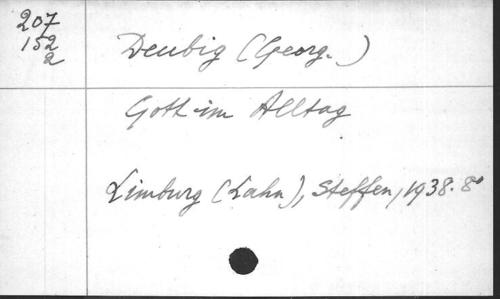 207
152
2
Deubig (Georg.)
Gott im Alltag
Limburg (Lahn), Steffen, 1938. 8°